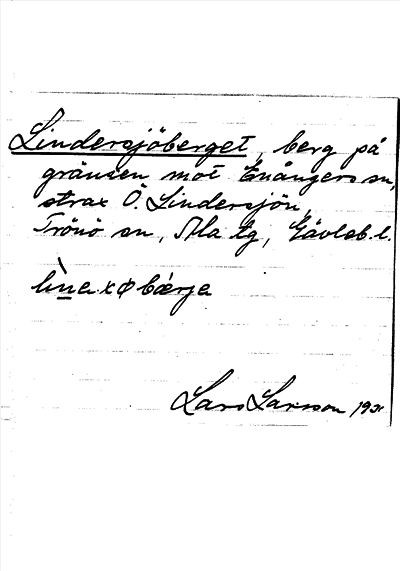 Lindersjöberget, berg på
gränsen mot Enångers sn,
strax Ö. Lindersjön,
Trönö sn, Ala tg, Gävleb. l.
Lars Larsson